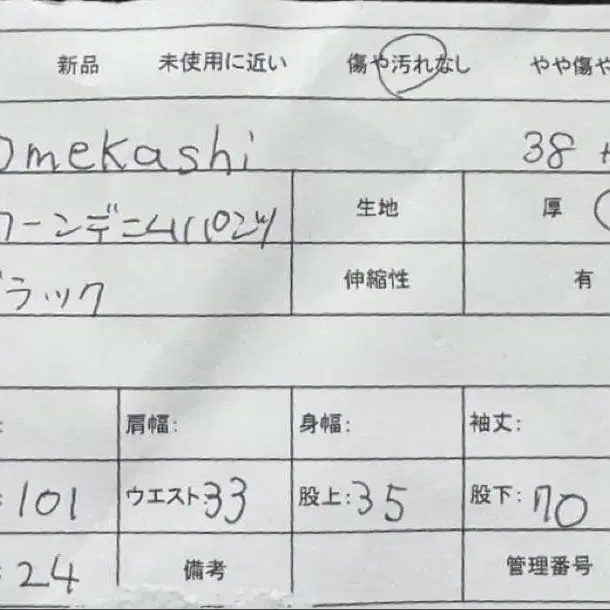 新品 未使用に近い 傷や汚れなし やや傷や
omekashi 38
ーンデニムパンツ 生地 厚
ラック 伸縮性 有
: 肩幅: 身幅: 袖丈:
: 101 ウエスト: 33 股上: 35 股下: 70
: 24 備考 管理番号